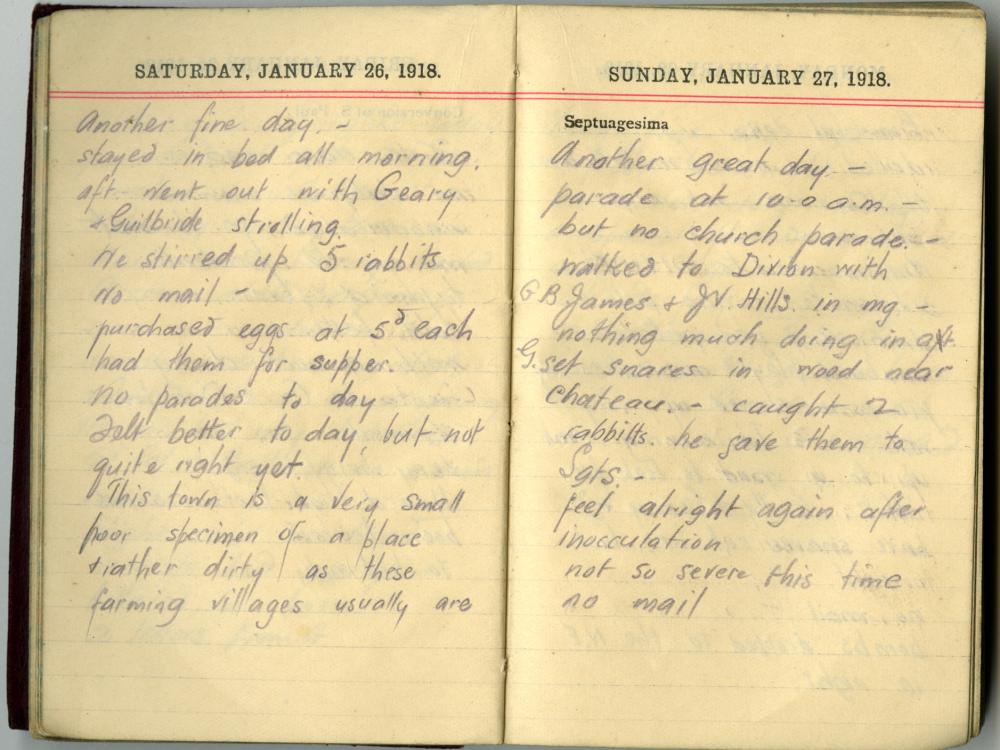 SATURDAY, JANUARY 26, 1918.
Another fine day. -
stayed in bed all morning.
aft. went out with Geary
& Guilbride strolling.
We stirred up 5 rabbits
No mail -
purchased eggs at 5d each
had them for supper.
No parades to day
Felt better to day, but not
quite right yet.
This town is a very small
poor specimen of a place
& rather dirty as these
farming villages usually are
SUNDAY, JANUARY 27, 1918.
Septuagesima
Another great day -
parade at 10-0 a.m. -
but no church parade. -
walked to Divion with
G B James & JV. Hills. in mg. -
nothing much doing in aft.
G. set snares in wood near
chateau. - caught 2
rabbitts. he gave them to
Sgts. -
feel alright again after
inocculation
not so severe this time
no mail